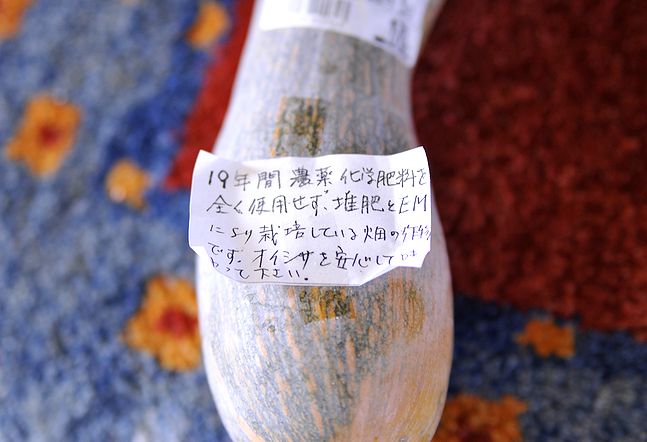 19年間 農薬 化学肥料を
全く使用せず、堆肥とEM
により栽培している畑の作物
です。オイシサを安心して
って下さい。